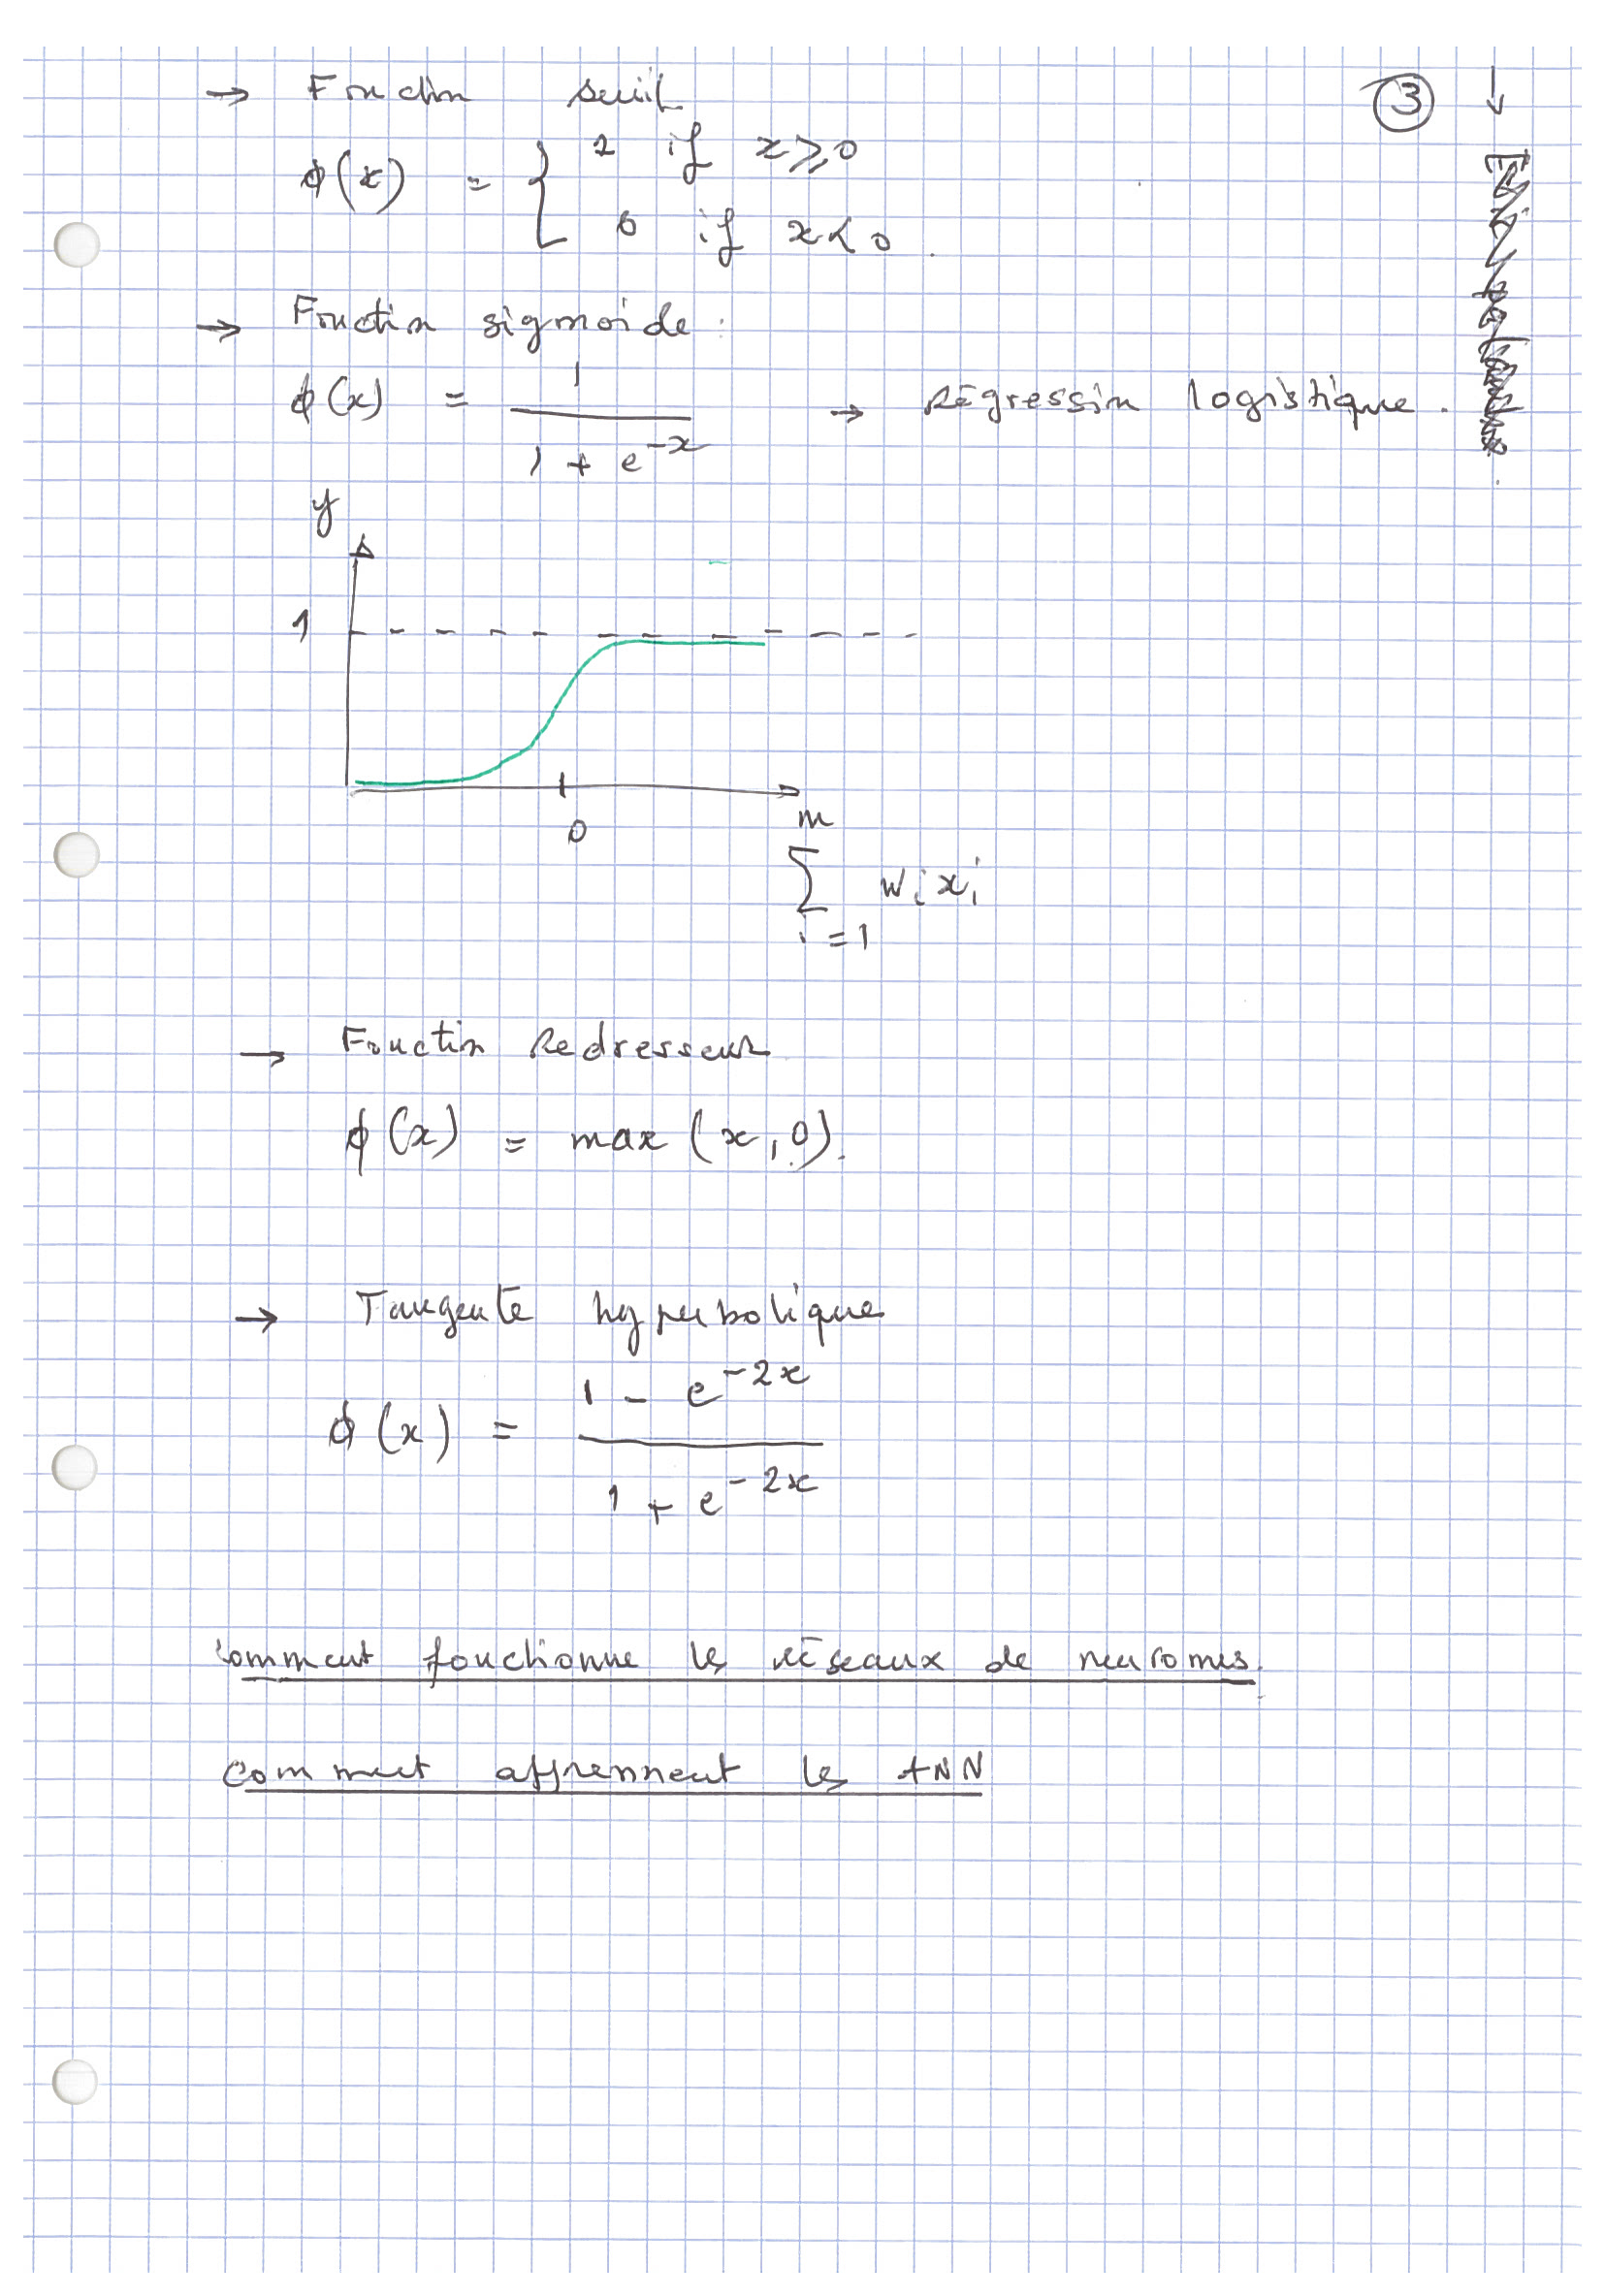 → Fonction seuil ③ ↓
ϕ(x) = { 1 if x ⩾ 0
0 if x < 0.
→ Fonction sigmoïde :
ϕ(x) = 1 / (1 + e^-x) → Régression logistique.
y
1
0
m
∑ wi xi
i = 1
→ Fonction Redresseur
ϕ(x) = max (x, 0).
→ Tangente hyperbolique
ϕ(x) = (1 - e^-2x) / (1 + e^-2x)
Comment fonctionne les réseaux de neurones.
Comment apprennent les ANN